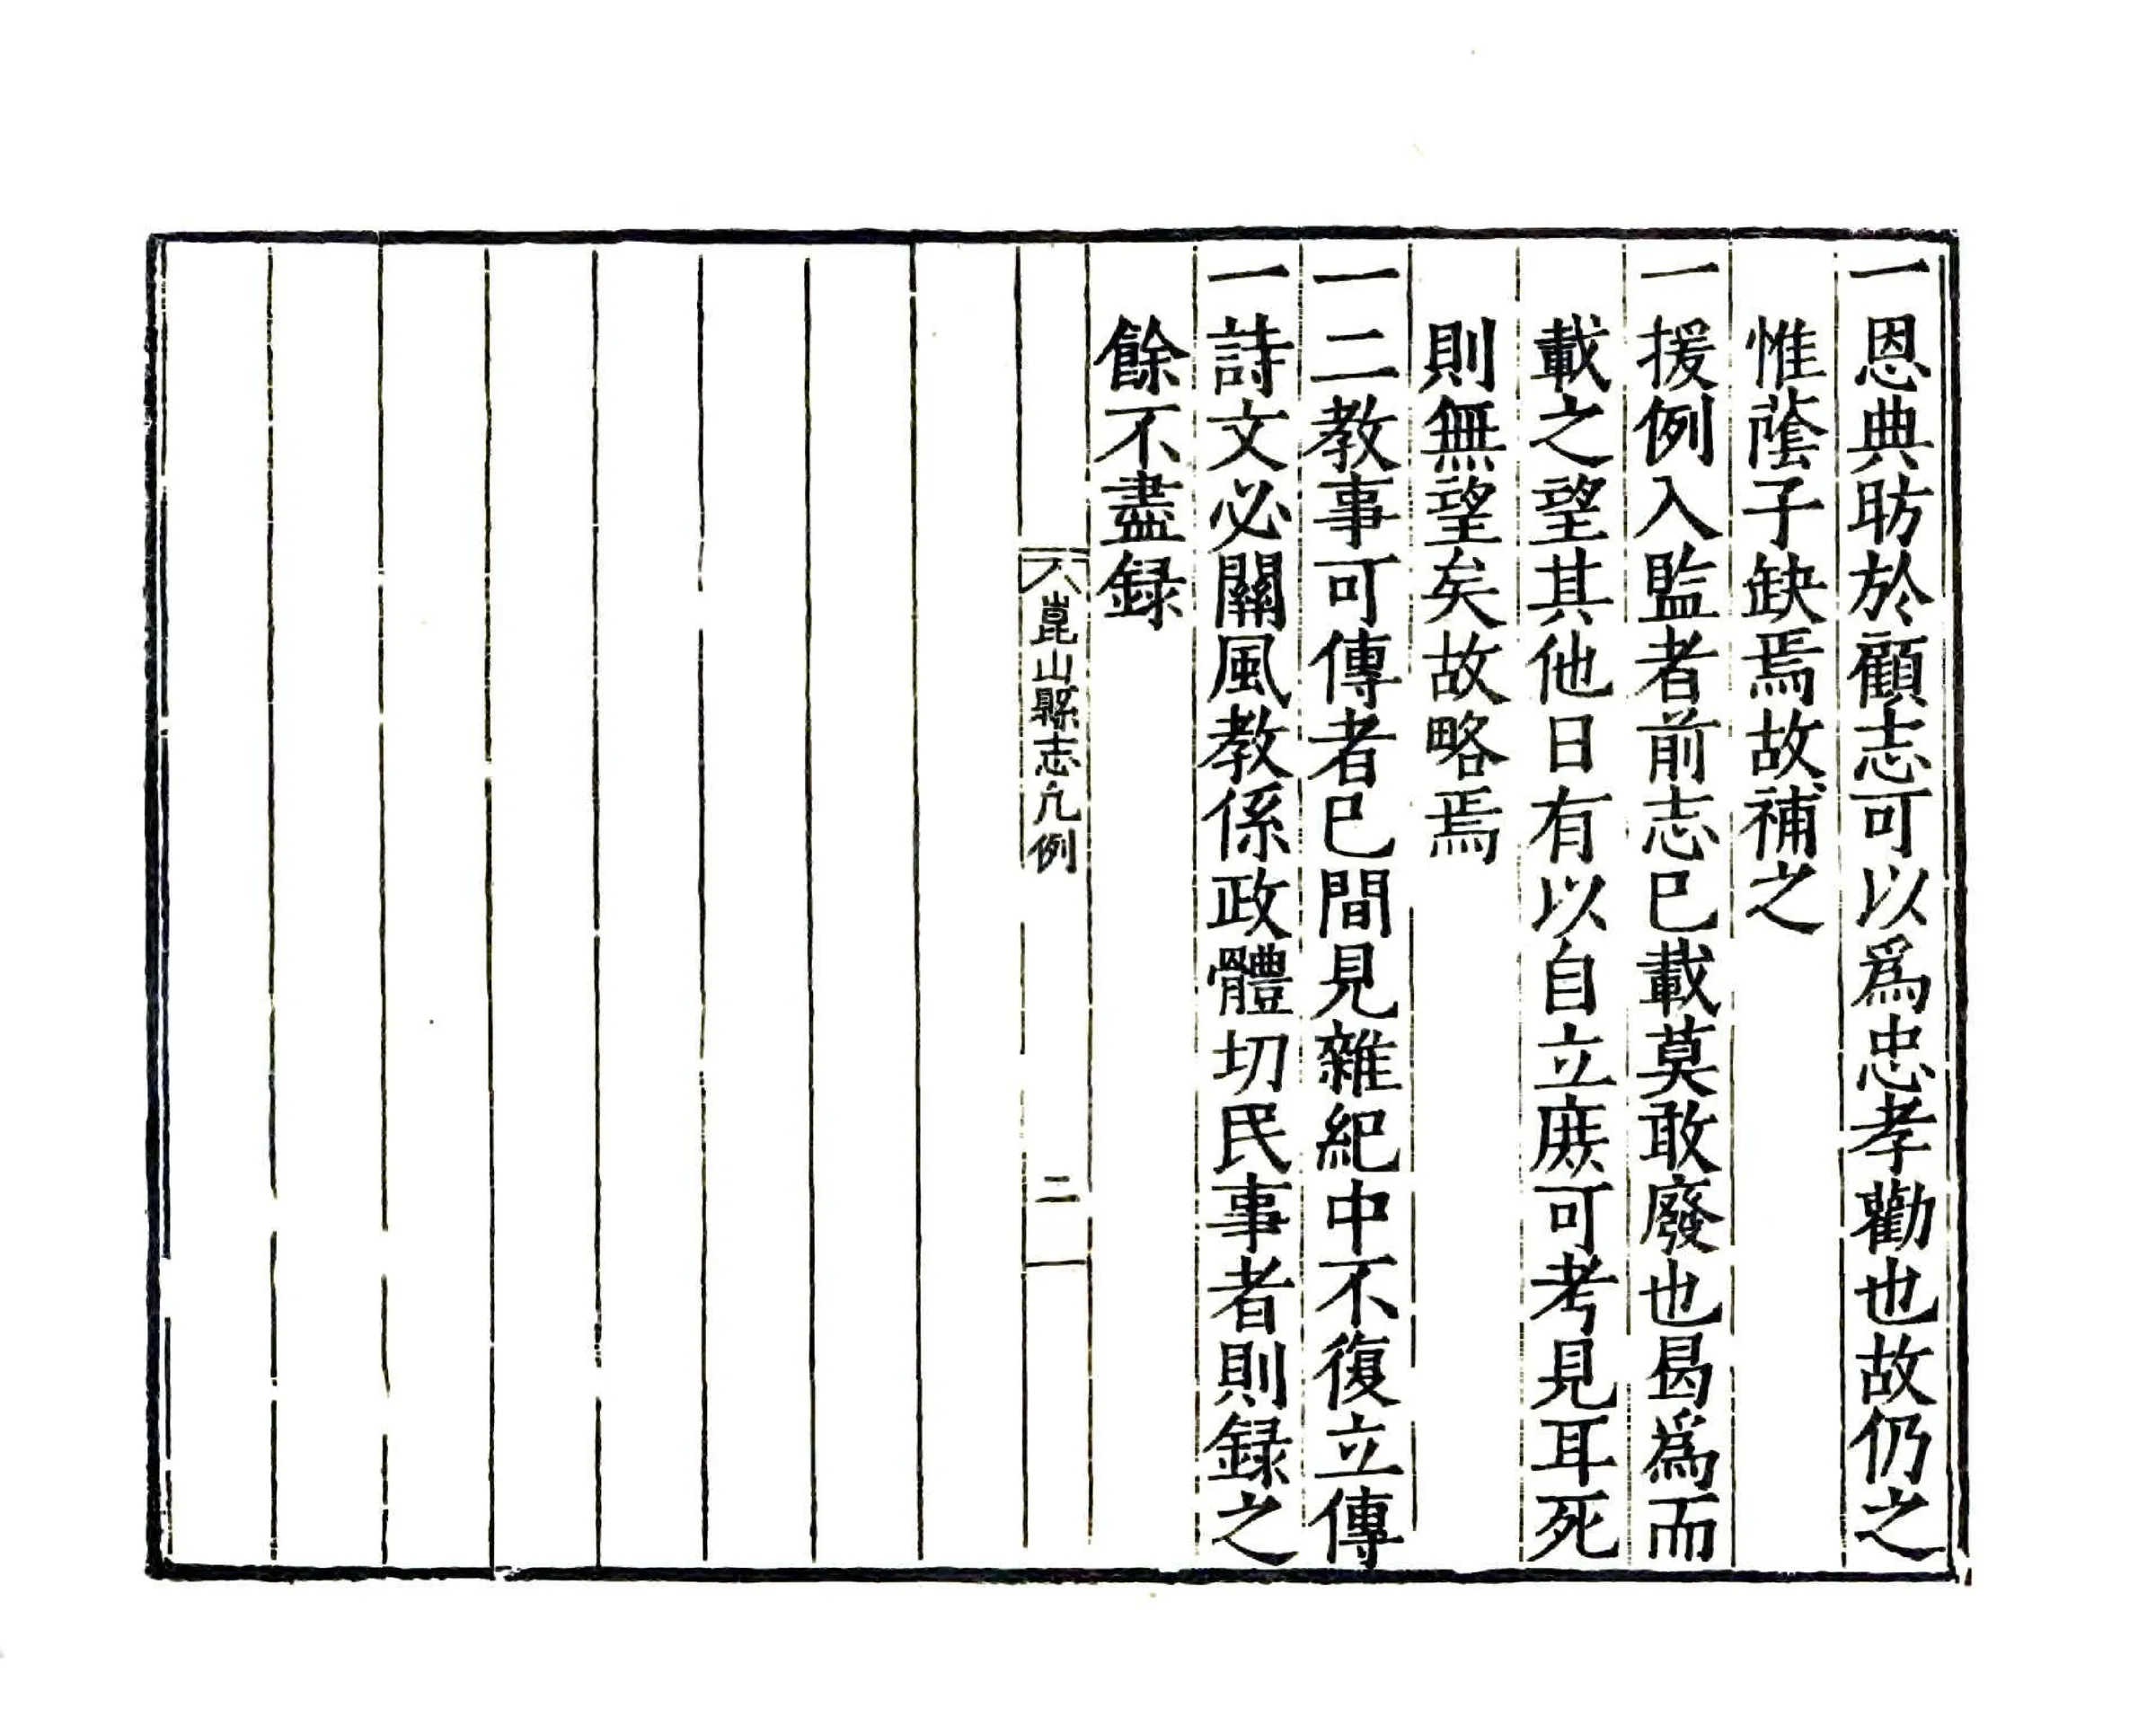 一恩典昉於顧志可以爲忠孝勸也故仍之
惟蔭子缺焉故補之
一援例入監者前志已載莫敢廢也曷爲而
載之望其他日有以自立庻可考見耳死
則無望矣故略焉
一二教事可傳者已間見雜紀中不復立傳
一詩文必關風教係政體切民事者則録之
餘不盡録
崑山縣志凡例
二